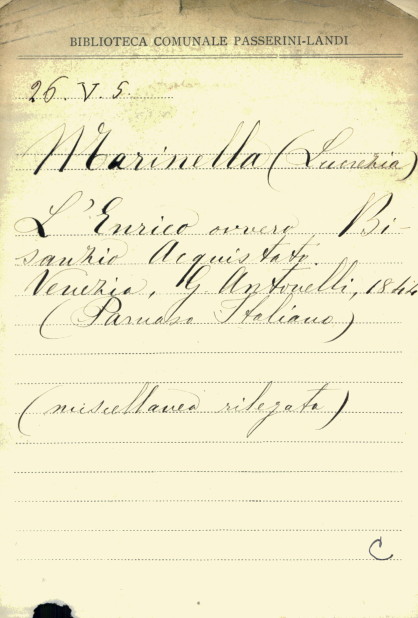 BIBLIOTECA COMUNALE PASSERINI-LANDI
26. V. 5.
Marinella (Lucrezia)
L'Enrico ovvero Bi-
sanzio Acquistato.
Venezia, G Antonelli, 1844
(Parnaso Italiano)
(miscellanea rilegata)
C